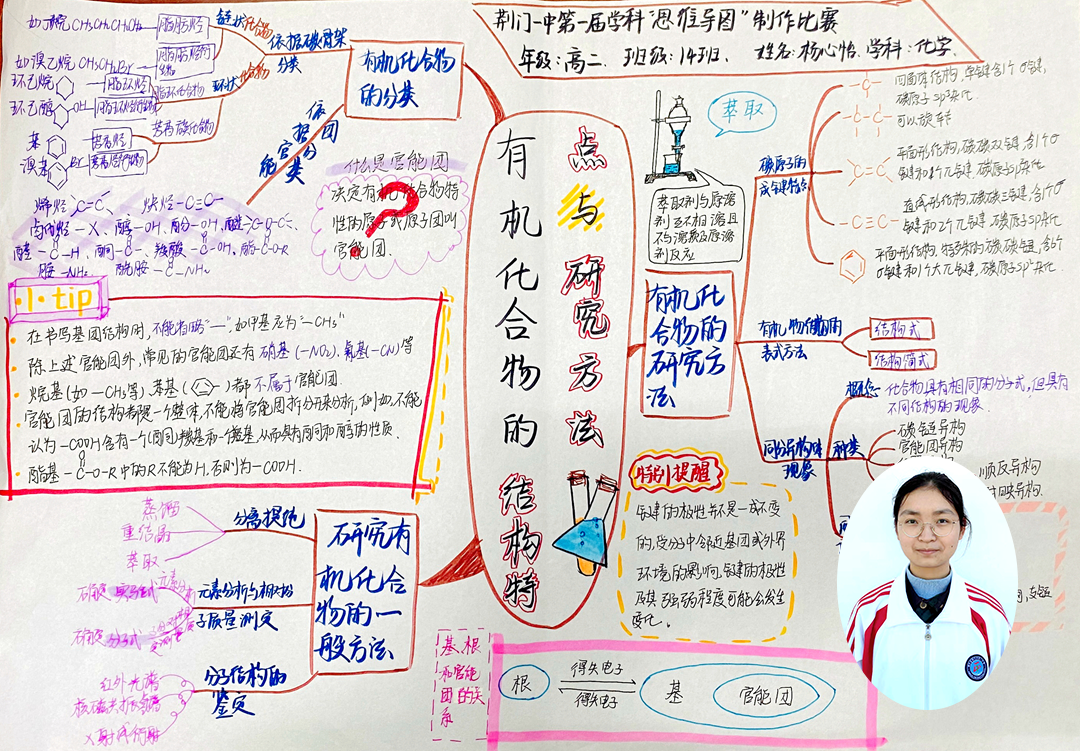 荆门一中第一届学科"思维导图"制作比赛
年级:高二 班级:14班 姓名:杨心怡 学科:化学
有机化合物的结构特
点与研究方法
有机化合物
的分类
依据碳骨架
分类
链状化合物
环状化合物
如丁烷 CH₃CH₂CH₂CH₃
脂肪烃
如溴乙烷 CH₃CH₂Br
环己烷
脂环烃
脂环化合物
环己醇
OH
苯
芳香烃
芳香族化合物
溴苯
Br
依据官能团分类
什么是官能团
决定有机化合物特
性的原子或原子团叫
官能团.
?
烯烃 C=C
炔烃 -C≡C-
卤代烃 -X、醇 -OH、酚 -OH、醚 -C-O-C-
醛 -C-H、酮 -C-、羧酸 -C-OH、酯 -C-O-R
胺 -NH₂ 酰胺 -C-NH₂
·1·tip
在书写基团结构时,不能省略"—",如甲基应为"—CH₃"
除上述官能团外,常见的官能团还有硝基(—NO₂)、氰基(—CN)等
烃基(如—CH₃等)、苯基( )都不属于官能团.
官能团的结构都是一个整体,不能将官能团拆分开来分析,例如,不能
认为—COOH含有一个(酮)羰基和一个羟基从而具有酮和醇的性质.
酯基 -C-O-R 中的R不能为H,否则为—COOH.
萃取
萃取剂与原溶
剂互不相溶且
不与溶质及原溶
剂反应
有机化
合物的
研究方
法
碳原子的
成键特点
四面体结构,单键含1个σ键,
碳原子sp³杂化.
可以旋转
平面形结构,碳碳双键,含1个σ
键和1个π键,碳原子sp²杂化.
直线形结构,碳碳三键,含1个σ
键和2个π键,碳原子sp杂化.
平面形结构,特殊的碳碳键,含6个
σ键和1个大π键,碳原子sp²杂化.
表式方法
结构式
结构简式
同分异构
现象
概念
化合物具有相同的分子式,但具有
不同结构的现象.
种类
碳链异构
官能团异构
顺反异构
对映异构.
特别提醒
键的极性并不是一成不变
的,受分子中邻近基团或外界
环境的影响,键的极性
及其强弱程度可能会发生
变化.
研究有
机化合
物的一
般方法
分离提纯
蒸馏
重结晶
萃取
元素分析与相对分
子质量测定
确定实验式
元素分析
确定分子式
分子结构的
鉴定
红外光谱
核磁共振氢谱
X射线衍射
基、根
和官能
团的关
系
根
得失电子
得失电子
基
官能团